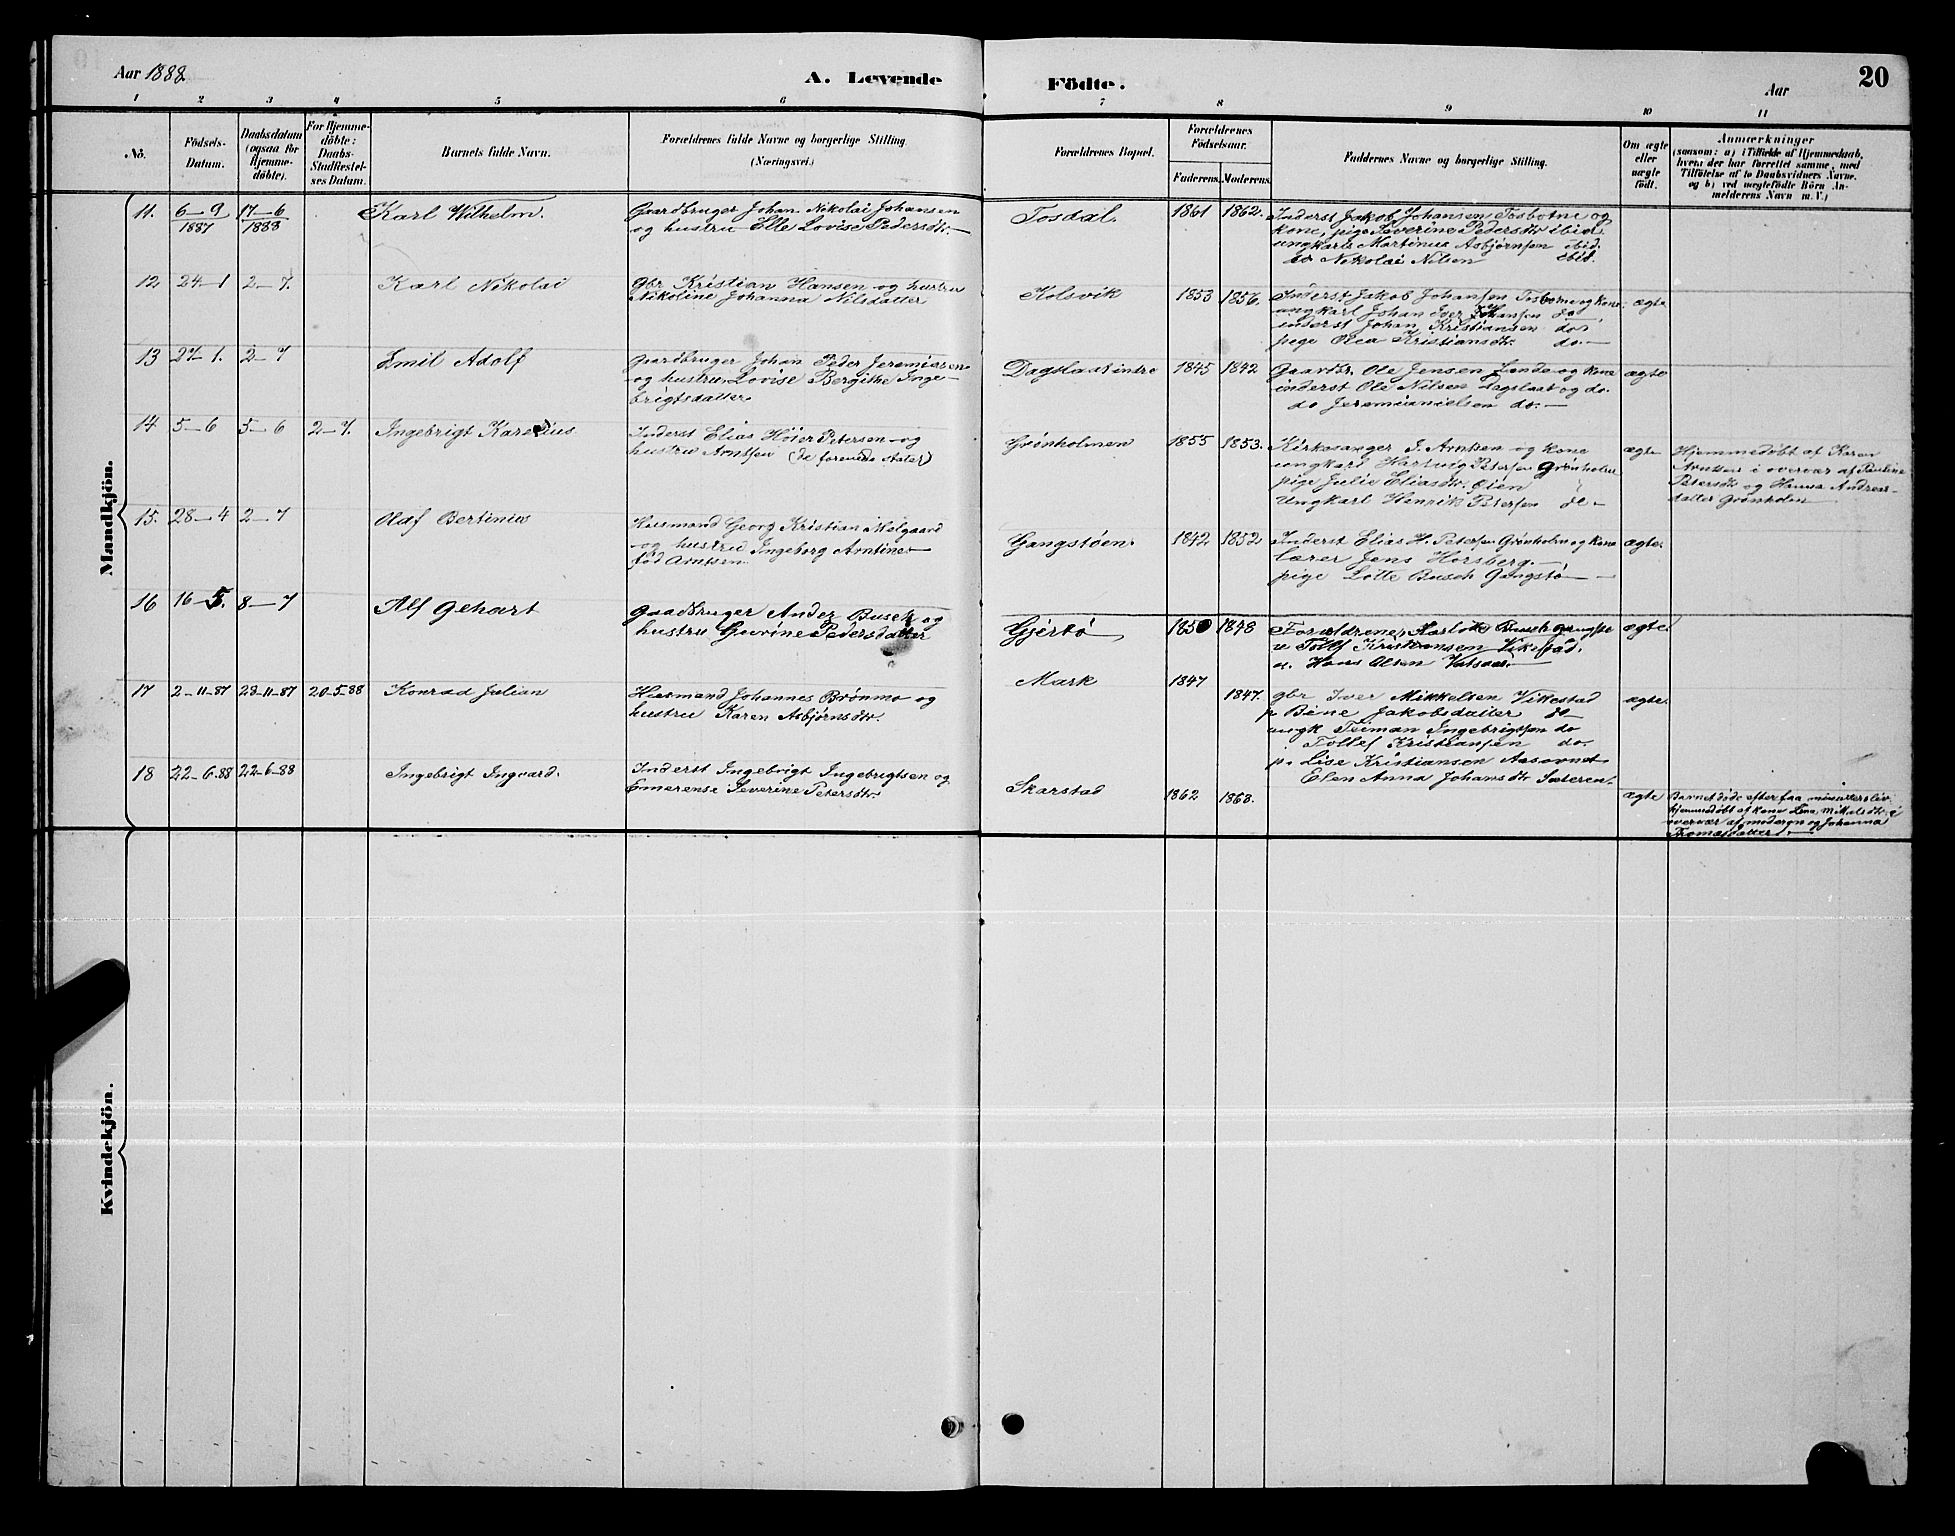 Aar 1888.
A. Levende Födte.
Aar
20
1 2 3 4 5 6 7 8 9 10 11
No.
Födsels-Datum.
Daabsdatum (ogsaa for Hjemme-döbte).
For Hjemme-döbte: Daabs-Stadfæstel-ses Datum.
Barnets fulde Navn.
Forældrenes fulde Navne og borgerlige Stilling
(Næringsvei.)
Forældrenes Bopæl.
Forældrenes Födselsaar.
Faderens. Moderens.
Faddernes Navne og borgerlige Stilling.
Om ægte eller uægte födt.
Anmærkninger
(saasom: a) i Tilfælde af Hjemmedaab,
hvem der har forrettet samme, med
Tilföielse af to Daabsvidners Navne.
og b) ved uægtefödte Börn An-
melderens Navn m. V.)
Mandkjön.
11. 6–9 1887 17–6 1888 Karl Wilhelm.
Gaardbruger Johan Nikolai Johansen
og hustru Elle Lovise Pedersdtr.
Tosdal 1861 1862.
Inderst Jakob Johansen Tosbotne og
kone, pige Severine Pedersdtr ibid.
ungkarls Martinus Asbjørnsen ibid.
do Nikolai Nilsen ibid.
12 24–1 2–7. Karl Nikolai
Gbr Kristian Hansen og hustru
Nikoline Johanna Nilsdatter
Kolsvik 1853 1856.
Inderst Jakob Johansen Tosbotne og kone
ungkarl Johan Iver Johansen do
inderst Johan Kristiansen do
pige Olea Kristiansdtr. do
ægte
13 27–1. 2–7 Emil Adolf
Gaardbruger Johan Peder Jeremiasen
og hustru Lovise Bergithe Inge-
brigtsdatter
Dagslaat indre 1845 1842
Gaardbr. Ole Jensen Lande og kone
inderst Ole Nilsen Dagslaat og do.
do Jeremianielsen do.
ægte
14 5–6 5–6 2–7. Ingebrigt Karelius
Inderst Elias Høier Petersen og
hustru Arntsen
Grønholmen 1855 1853.
Kirkesanger J. Arntsen og kone
ungkarl Hartvig Petersen Grønholm
pige Julie Eliasdtr. Øien
Ungkarl Henrik Petersen do
ægte
Hjemmedøbt af Karen
Arntsen i overvær af Pauline
Petersdtr og Hanna Andreas-
datter Grønholm
15. 28–4 2–7 Olaf Bertinius
Huusmand Georg Kristian Melgaard
og hustru Ingeborg Arntine
fød Arntsen.
Gangstøen 1842 1852
Inderst Elias H. Petersen Grønholm og kone
lærer Jens Horsberg.
pige Lotte Busch Gangstø
ægte.
16 16–5. 8–7 Alf Gehart
Gaardbruger Andez Busch og
hustru Gurine Pedersdatter
Gjertø 1850 1848
Forældrene, Busch
u Tollef Kristiansen Vikestad.
u. Hans Olsen
ægte
17 2–11–87 28–11–87 20–5–88 Konrad Julian
Husmand Johannes Brønmo og
hustru Karen Asbjørnsdtr.
Mark 1847 1847.
gbr Iver Mikkelsen Vikestad
p Bine Jakobsdatter do
ungk Ingebrigtsen do
Tollef Kristiansen do.
p. Lise Kristiansen Aasavnet
Elen Anna Johansdtr Sæteren
ægte.
18 22–6–88 22–6–88 Ingebrigt Ingvard.
Inderst Ingebrigt Ingebrigtsen og
Emerense Severine Petersdtr.
Skarstad 1862 1868.
ægte
Barnet døde efter faa minutters liv
hjemmedøbt af kone Lena Mikalsdtr. i
overvær af moderen og Johanna
Thomasdatter
Kvindekjön.